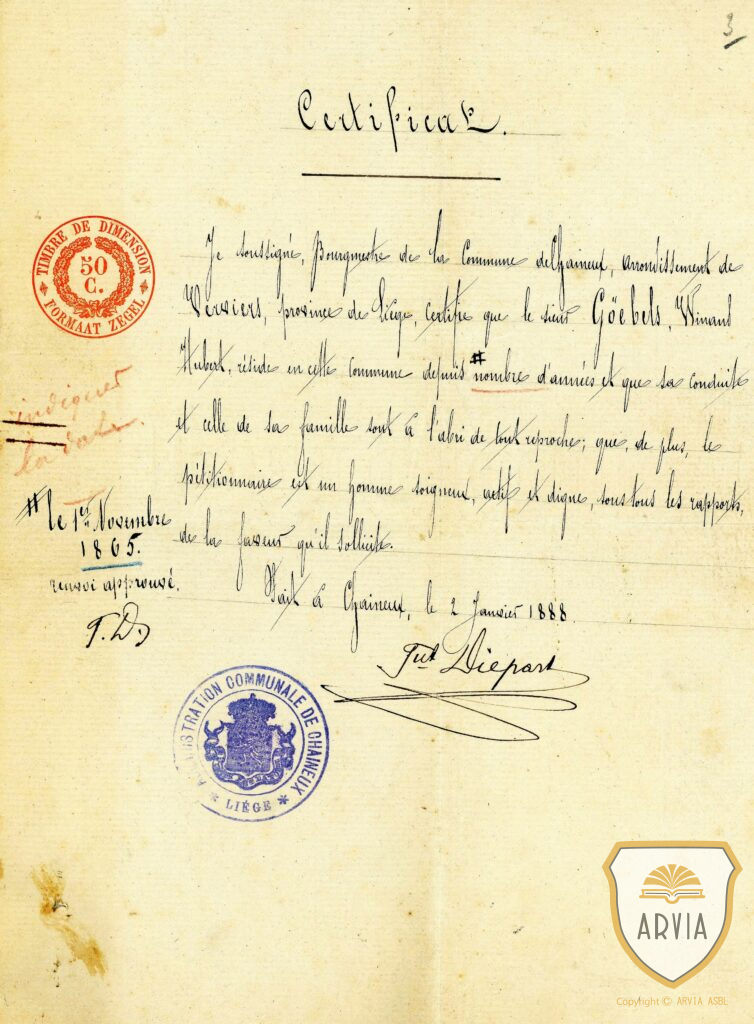 3
Certificat.
TIMBRE DE DIMENSION
50
C.
FORMAAT ZEGEL
Je soussigné, Bourgmestre de la Commune de Chaineux, arrondissement de
Verviers, province de Liège, certifie que le sieur Göebels, Winand
Hubert, réside en cette commune depuis # nombre d'années et que sa conduite
et celle de sa famille sont à l'abri de tout reproche; que, de plus, le
pétitionnaire est un homme soigneux, actif et digne, sous tous les rapports,
de la faveur qu'il sollicite.
Fait à Chaineux, le 2 Janvier 1888.
indiquer
la date.
# le 1er Novembre
1865.
renvoi approuvé.
T. D.
Diepart
ADMINISTRATION COMMUNALE DE CHAINEUX
* LIÉGE *
ARVIA
Copyright © ARVIA ASBL